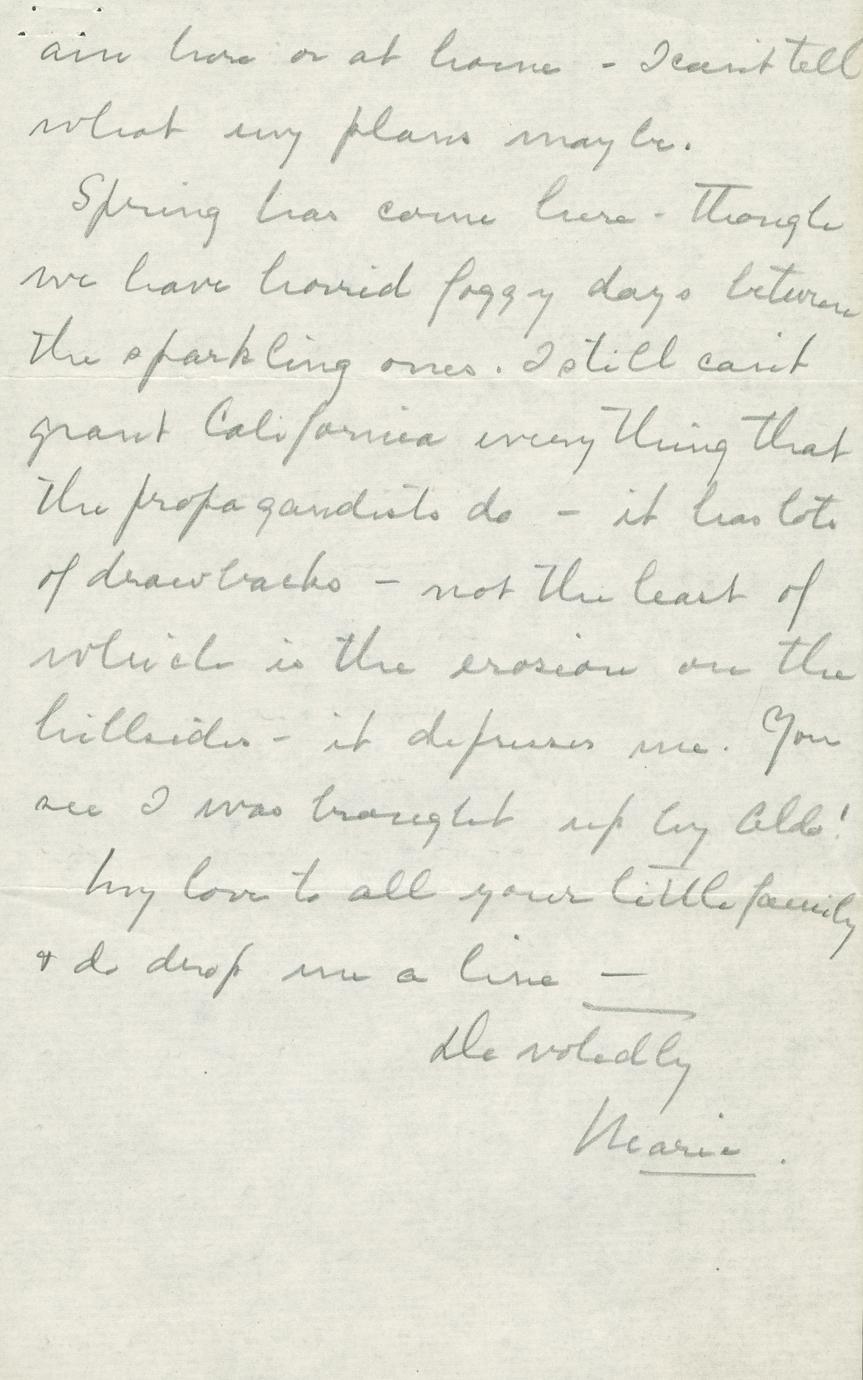 am here or at home - I can't tell
what my plans may be.
Spring has come here - though
we have horrid foggy days between
the sparkling ones. I still can't
grant California everything that
the propagandists do - it has lots
of drawbacks - not the least of
which is the erosion on the
hillsides - it depresses me. You
see I was brought up by Aldo!
My love to all your little family
& do drop me a line —
Devotedly
Marie.